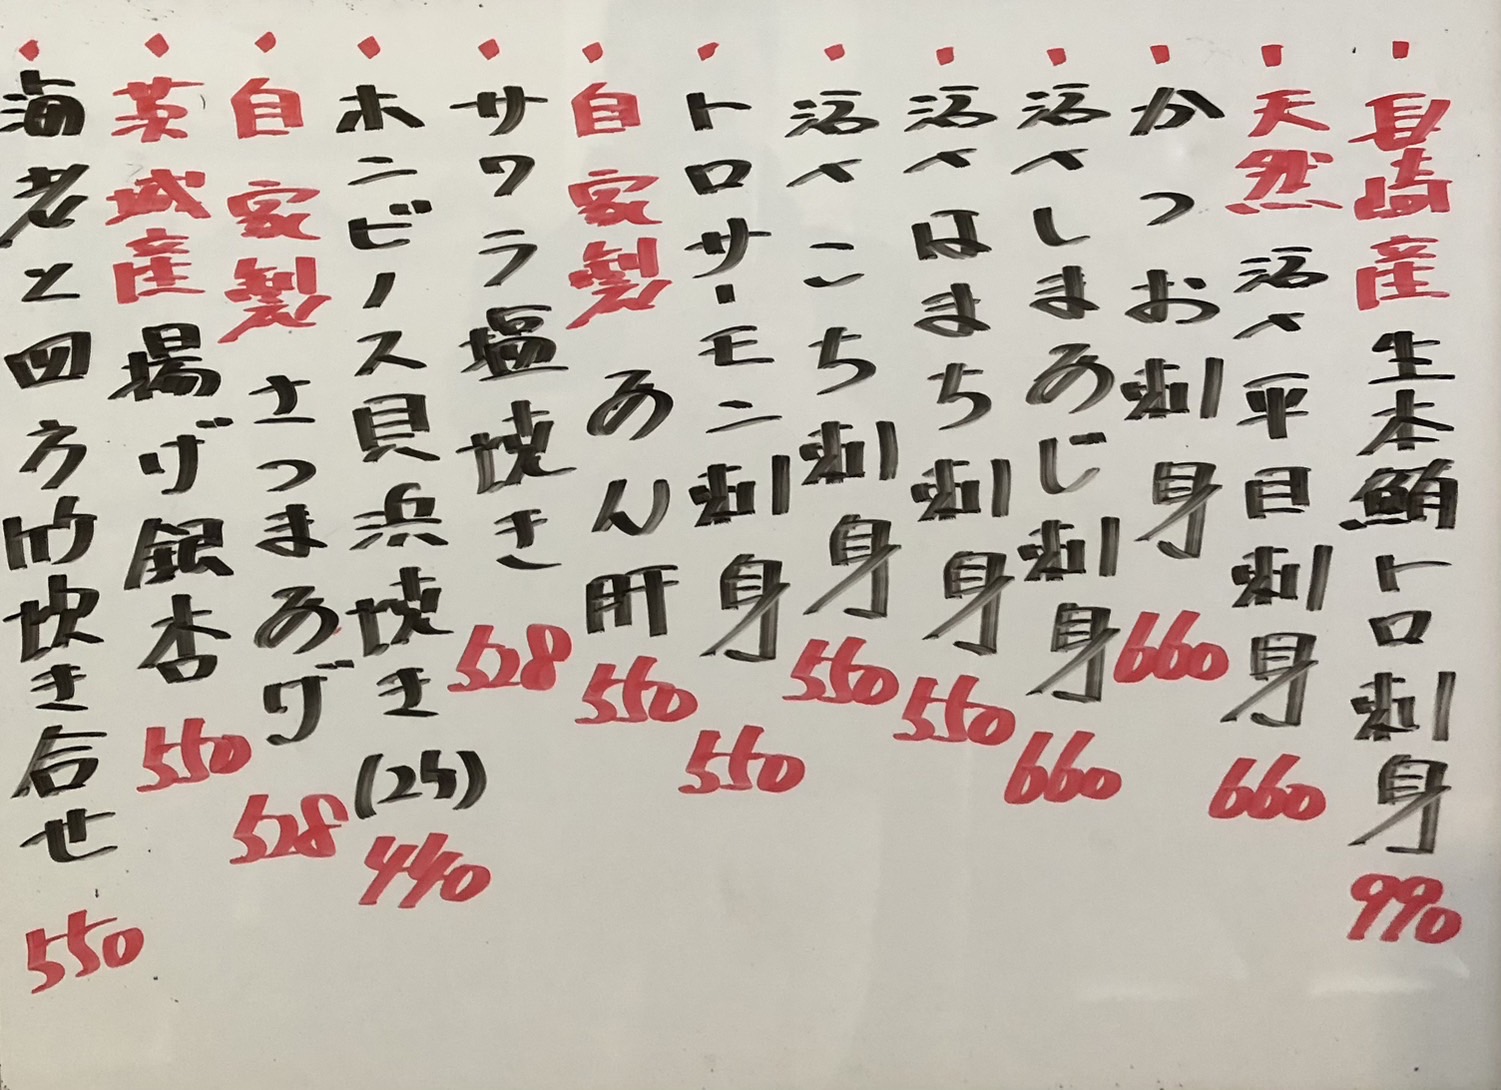 ・長崎産 生本鮪トロ刺身 990
・天然 活〆平目刺身 660
・かつお刺身 660
・活〆しまあじ刺身 660
・活〆はまち刺身 550
・活〆こち刺身 550
・トロサーモン刺身 550
・自家製 あん肝 550
・サワラ塩焼き 528
・ホンビノス貝浜焼き(2ケ) 440
・自家製 さつまあげ 528
・茨城産 揚げ銀杏 550
・海老と四方竹炊き合せ 550